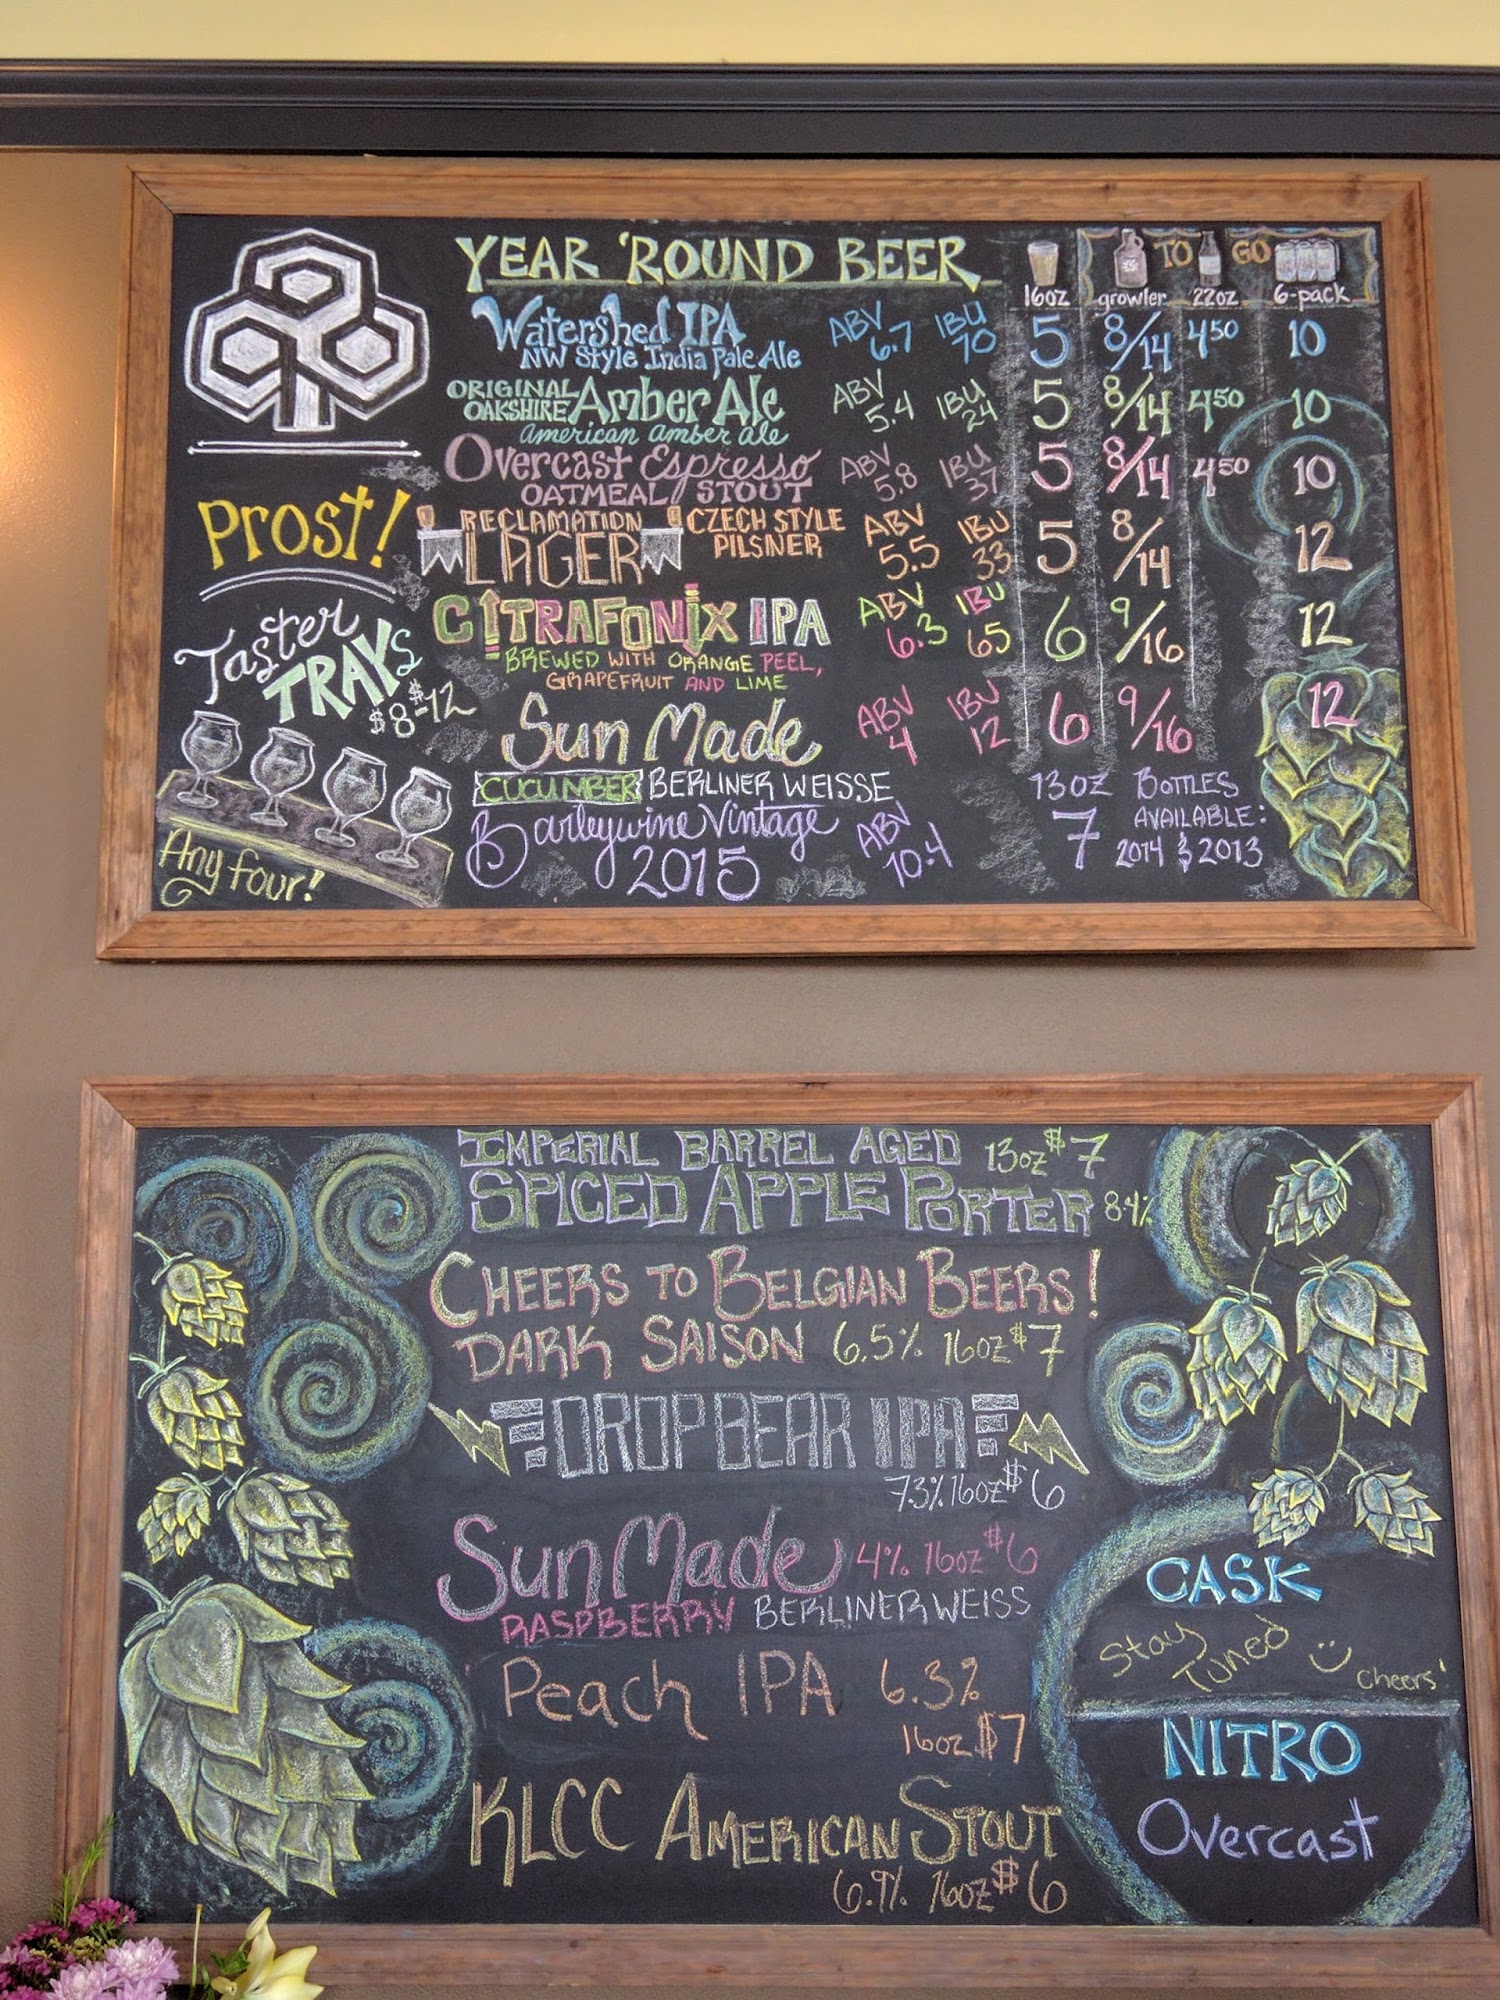 YEAR 'ROUND BEER
16oz growler TO 22oz GO 6-pack
Watershed IPA ABV 6.7 IBU 70 5 8/14 4.50 10
NW Style India Pale Ale
ORIGINAL OAKSHIRE Amber Ale ABV 5.4 IBU 24 5 8/14 4.50 10
american amber ale
Overcast Espresso ABV 5.8 IBU 37 5 8/14 4.50 10
OATMEAL STOUT
RECLAMATION LAGER CZECH STYLE PILSNER ABV 5.5 IBU 33 5 8/14 12
CITRAFONIX IPA ABV 6.3 IBU 65 6 9/16 12
BREWED WITH ORANGE PEEL,
GRAPEFRUIT AND LIME
Sun Made ABV 4 IBU 12 6 9/16 12
CUCUMBER BERLINER WEISSE
Barleywine Vintage 2015 ABV 10.4 13oz 7
BOTTLES
AVAILABLE:
2014 & 2013
Prost!
Taster
TRAYS
$8-$12
Any four!
IMPERIAL BARREL AGED 13oz $7
SPICED APPLE PORTER 8.4%
CHEERS TO BELGIAN BEERS!
DARK SAISON 6.5% 16oz $7
DROP BEAR IPA
7.3% 16oz $6
Sun Made 4% 16oz $6
RASPBERRY BERLINER WEISS
Peach IPA 6.3%
16oz $7
KLCC AMERICAN STOUT
6.9% 16oz $6
CASK
Stay
Tuned
cheers!
NITRO
Overcast